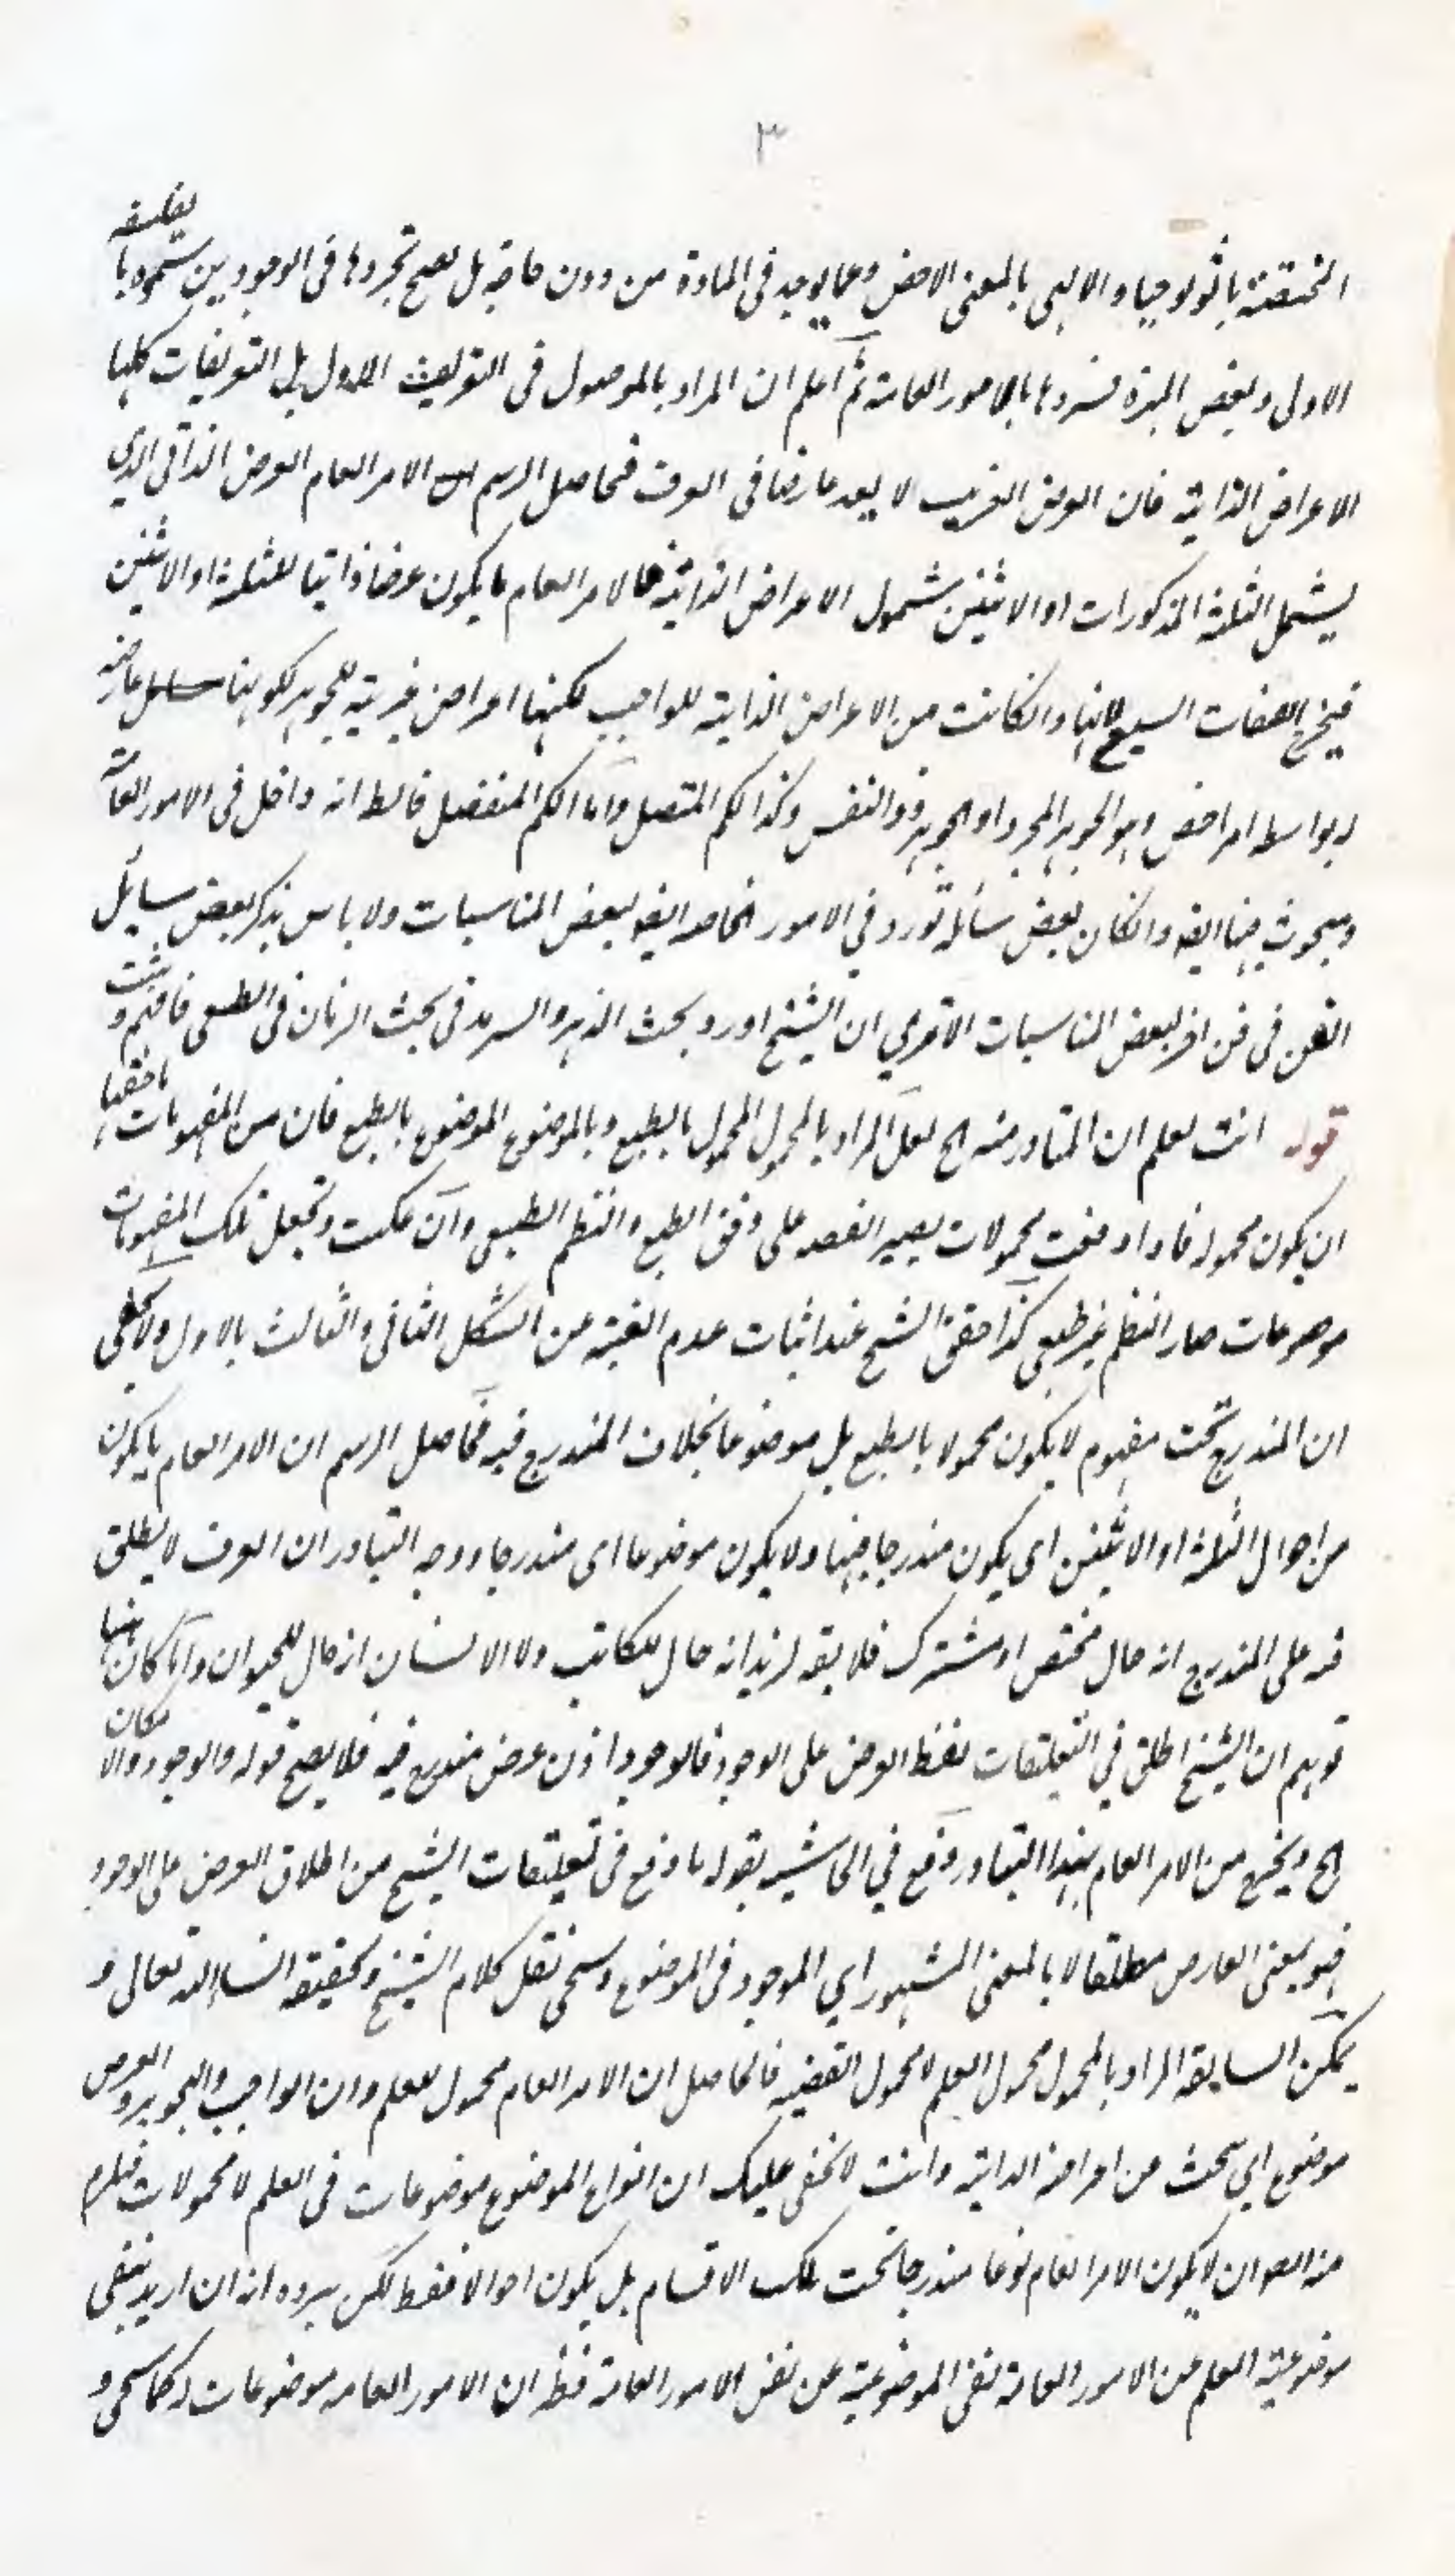 ٣
المختصة باثولوجيا والالهى بالمعنى الاخص وعما يوجد فى المادة من دون حاجة بل يصح تجردها فى الوجودين سموه بالفلسفة
الاولى وبعض المهرة فسروها بالامور العامة ثم اعلم ان المراد بالموصول فى التعريف الاول بل التعريفات كلها
الاعراض الذاتية فان العرض الغريب لا يعد عارضا فى العرف فحاصل الرسم ان الامر العام العرض الذاتى الذي
يشمل الثلثة المذكورات او الاثنين شمول الاعراض الذاتية فالامر العام ما يكون عرضا ذاتيا للثلثة او الاثنين
فيخرج الصفات السبع لانها وانكانت من الاعراض الذاتية للواجب لكنها اعراض غريبة للجوهر لكونها عارضة
له بواسطه امر اخص وهو الجوهر المجرد او الجوهر ذو النفس وكذا الكم المتصل واما الكم المنفصل فالظ انه داخل فى الامور العامة
ومبحوث فيها ايضا وانكان بعض مسائله تورد في الامور الخاصه ايضا لبعض المناسبات ولا باس بذكر بعض مسايل
الفن فى فن اخر لبعض المناسبات الا ترى ان الشيخ اورد بحث الدهر والسرمد فى بحث الزمان فى الطبعى فافهم وتثبت
قوله انت تعلم ان المتبادر منه الخ لعل المراد بالمحمول المحمول بالطبع وبالموضوع الموضوع بالطبع فان من المفهومات ما حقها
ان يكون محمولة فاذا وضعت محمولات يصير القصد على وفق الطبع والنظم الطبيعى وان عكست وتجعل تلك المفهومات
موضوعات صار النظم غير طبعى كذا حقق الشيخ عند اثبات عدم الغنية عن الشكل الثانى والثالث بالاول ولا يخفى
ان المندرج تحت مفهوم لا يكون محمولا بالطبع بل موضوعا بخلاف المندرج فيه فحاصل الرسم ان الامر العام ما يكون
من احوال الثلثة او الاثنين اى يكون مندرجا فيها ولا يكون موضوعا اى مندرجا ووجه التبادر ان العرف لا يطلق
فيه على المندرج انه حال مختص او مشترك فلا يقه لزيد انه حال للكاتب ولا الانسان انه حال للحيوان ولما كان ههنا
توهم ان الشيخ اطلق في التعليقات لفظ العرض على الوجود فالوجود اذن عرض مندرج فيه فلا يصح قوله والوجود والامكان
الخ ويخرج من الامر العام بهذا التبادر دفع في الحاشية بقوله ما وقع فى تعليقات الشيخ من اطلاق العرض على الوجود
فهو بمعنى العارض مطلقا لا بالمعنى المشهور اي الموجود فى الموضوع وسيجى نقل كلام الشيخ وتحقيقه انشاء الله تعالى و
يمكن ان يقه المراد بالمحمول محمول العلم لا محمول القضيه فالحاصل ان الامر العام محمول للعلم وان الواجب والجوهر والعرض
موضوع اي يبحث عن اعراضه الذاتية وانت لا يخفى عليك ان انواع الموضوع موضوعات فى العلم لا محمولات فيلزم
منه ان لا يكون الامر العام نوعا مندرجا تحت تلك الاقسام بل يكون احوالا فقط لكن يرد انه ان اريد بنفى
موضوعية العلم عن الامور العامة نفى الموضوعية عن نفس الامور العامة فظ ان الامور العامه موضوعات له كما سيجى و